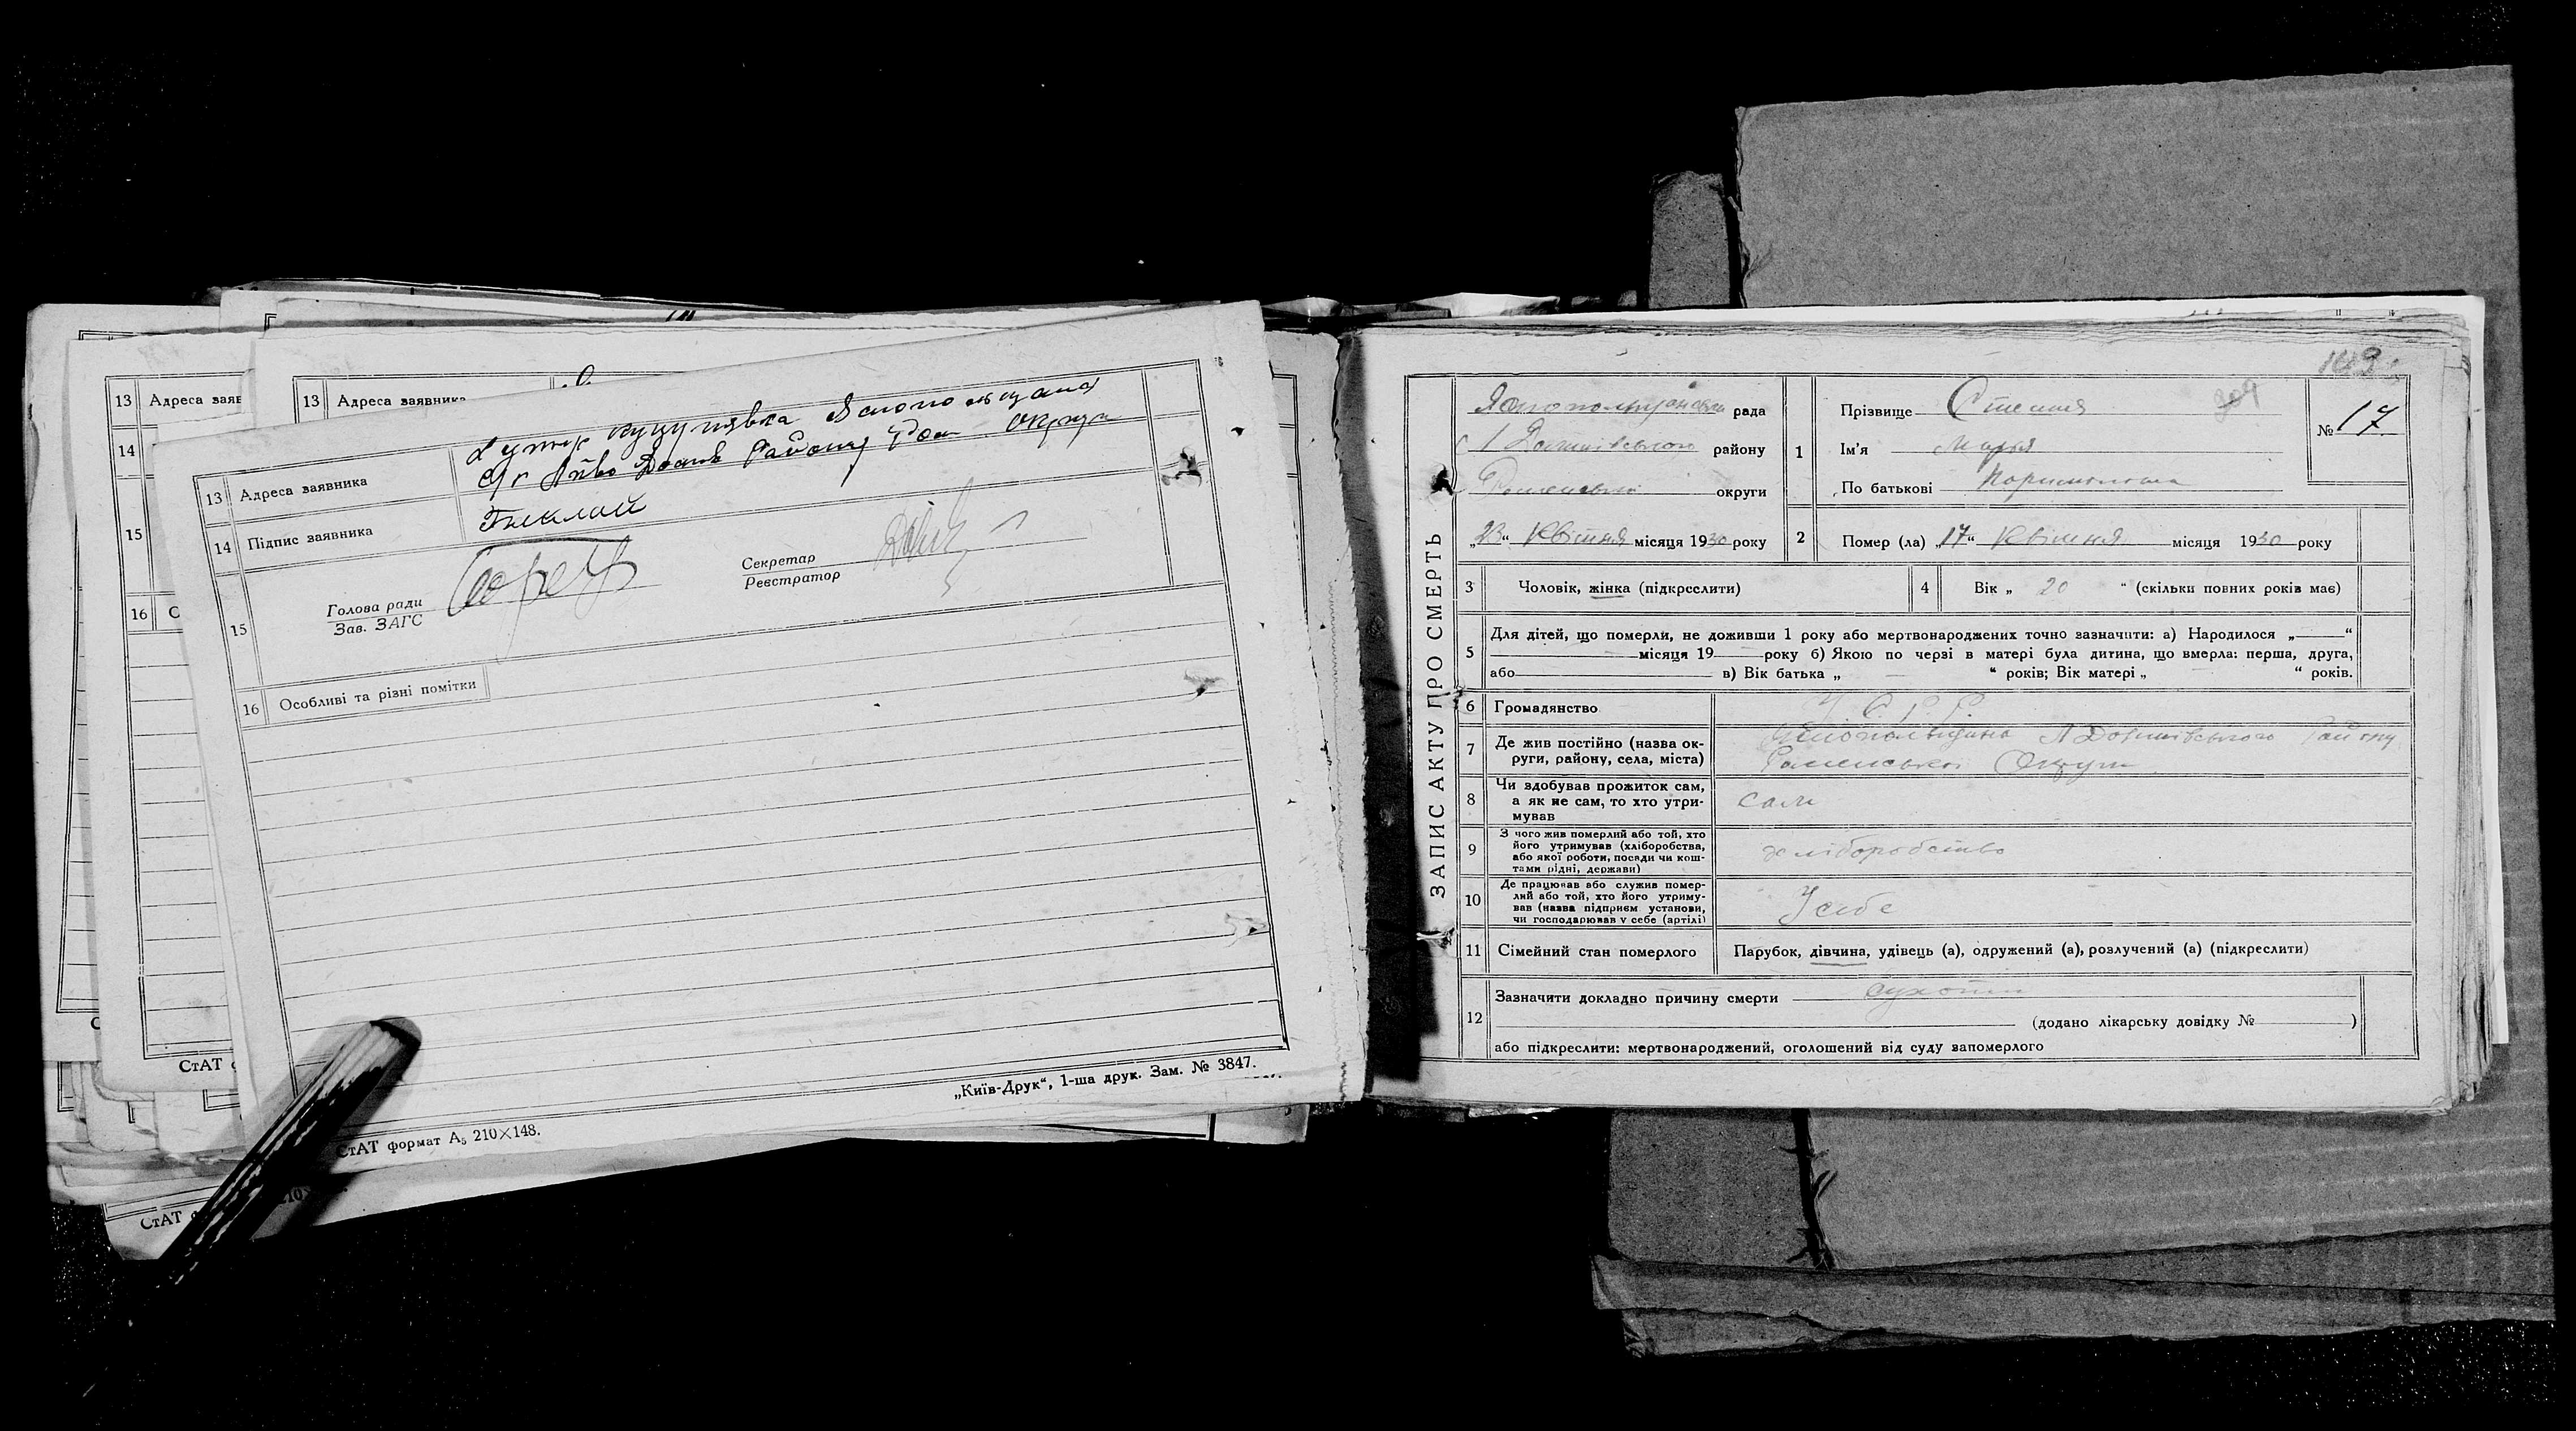 13 Адреса заяв
14
15
16 С
СтАТ
СтАТ
13 Адреса заявника
13 Адреса заявника Хутір
Району Округи
14 Підпис заявника
15 Голова ради
Зав. ЗАГС
Секретар
Реєстратор
16 Особливі та різні помітки
„Київ-Друк“, 1-ша друк. Зам. № 3847.
СтАТ формат А5 210×148.
ЗАПИС АКТУ ПРО СМЕРТЬ
рада
району
Роменської округи
„23“ Квітня місяця 1930 року
1 Прізвище
Ім'я Марья
По батькові
№ 17
2 Помер (ла) „17“ Квітня місяця 1930 року
3 Чоловік, жінка (підкреслити)
4 Вік „ 20 “ (скільки повних років має)
5 Для дітей, що померли, не доживши 1 року або мертвонароджених точно зазначити: а) Народилося „ “
місяця 19 року б) Якою по черзі в матері була дитина, що вмерла: перша, друга,
або в) Вік батька „ “ років; Вік матері „ “ років.
6 Громадянство У. С. Р. Р.
7 Де жив постійно (назва ок-
руги, району, села, міста)
Району
Роменської Округи
8 Чи здобував прожиток сам,
а як не сам, то хто утри-
мував
сам
9 З чого жив померлий або той, хто
його утримував (хліборобства,
або якої роботи, посади чи кош-
тами рідні, держави)
хліборобство
10 Де працював або служив помер-
лий або той, хто його утриму-
вав (назва підприєм установи,
чи господарював у себе (артілі)
У себе
11 Сімейний стан померлого Парубок, дівчина, удівець (а), одружений (а), розлучений (а) (підкреслити)
12 Зазначити докладно причину смерти сухоти
(додано лікарську довідку № )
або підкреслити: мертвонароджений, оголошений від суду запомерлого